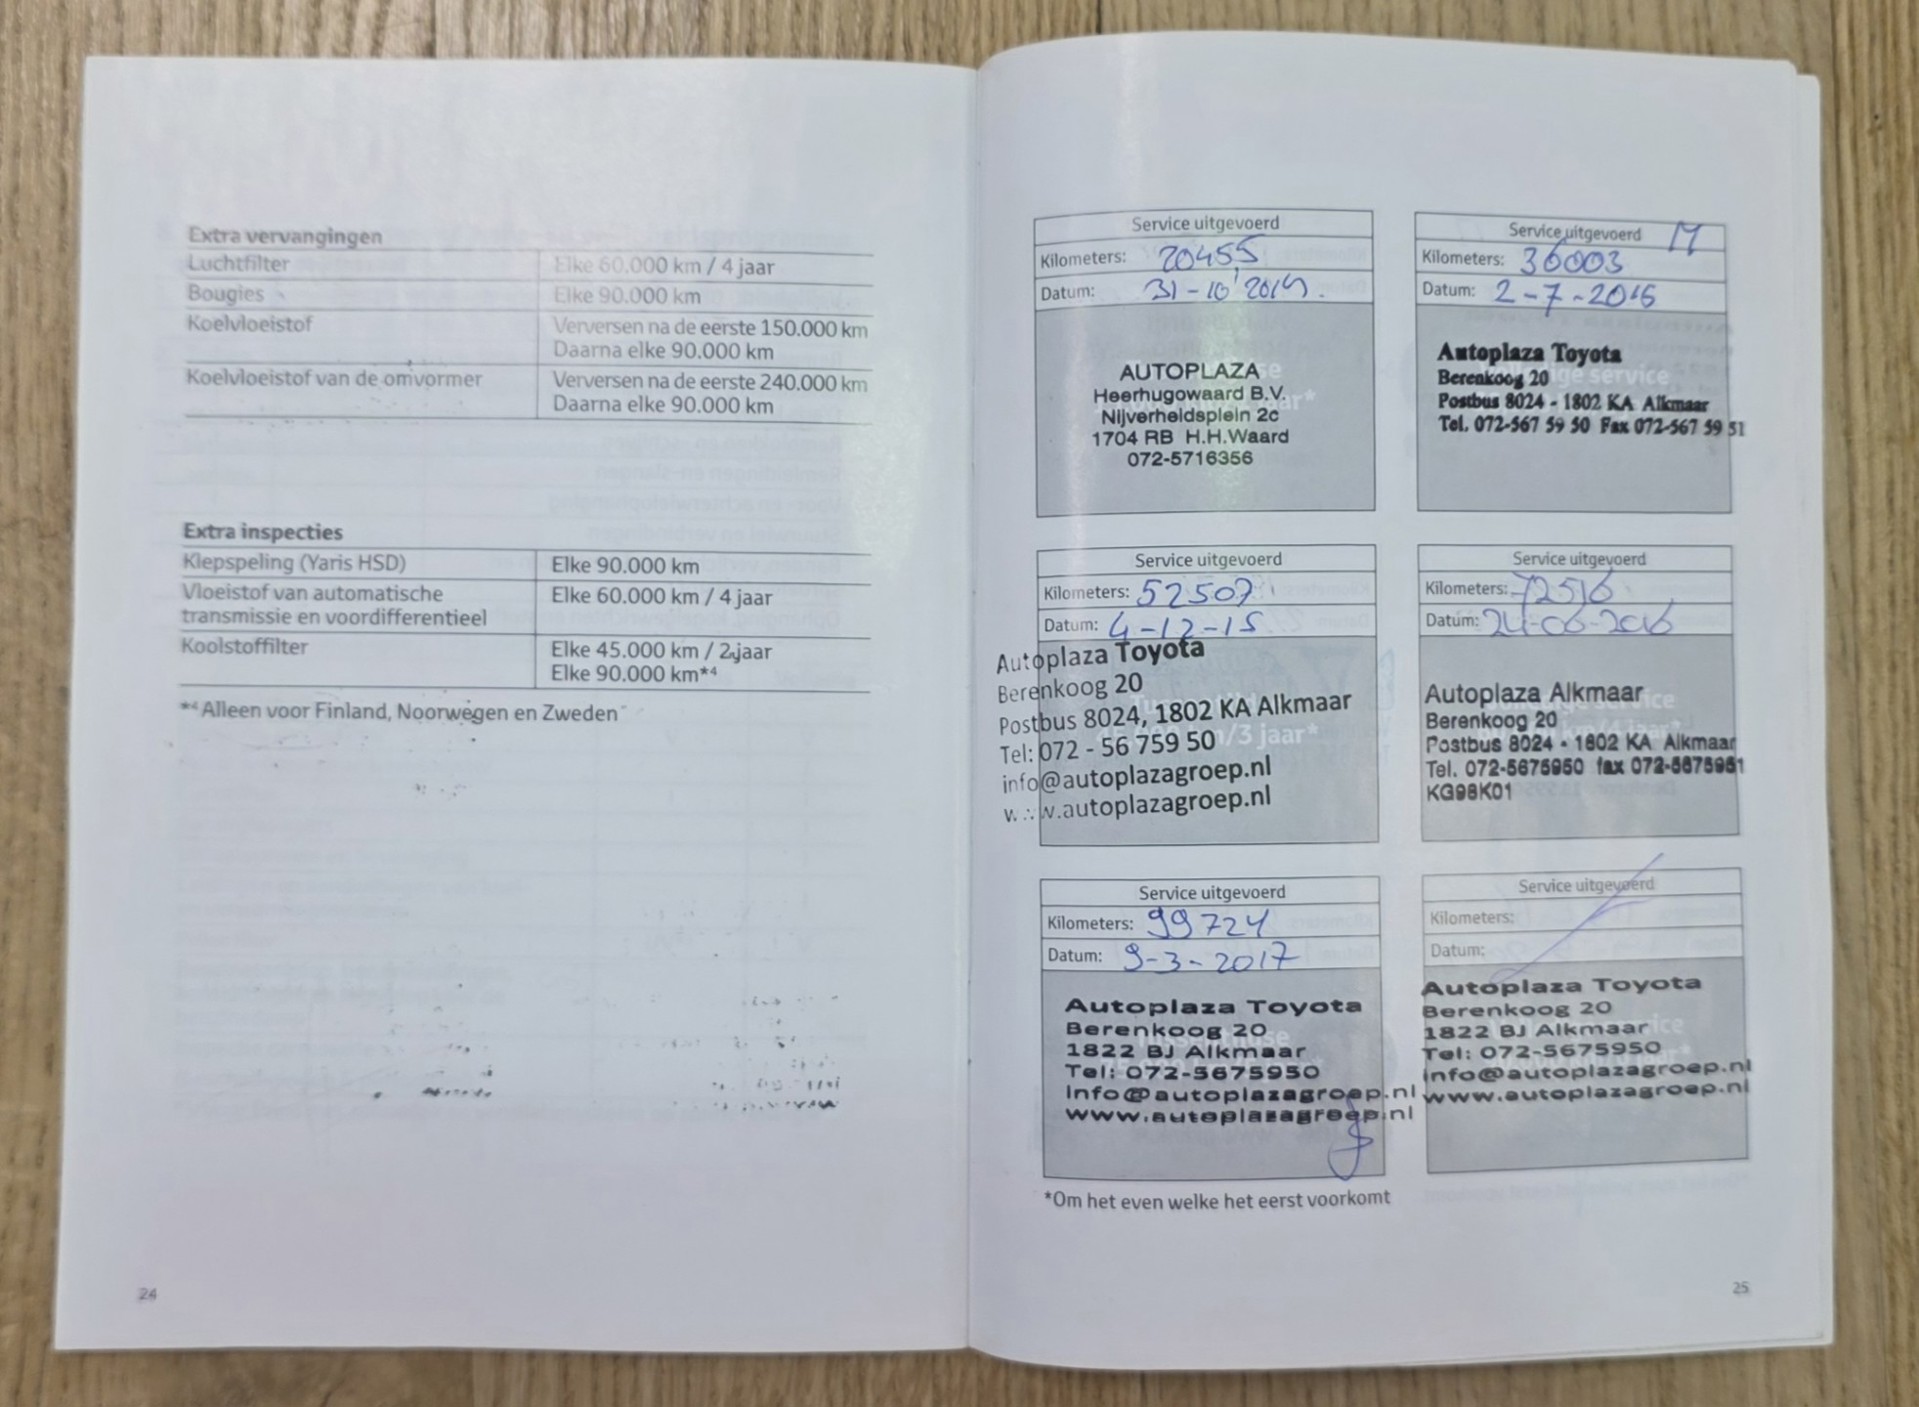 Extra vervangingen
Luchtfilter Elke 60.000 km / 4 jaar
Bougies Elke 90.000 km
Koelvloeistof Verversen na de eerste 150.000 km
Daarna elke 90.000 km
Koelvloeistof van de omvormer Verversen na de eerste 240.000 km
Daarna elke 90.000 km
Extra inspecties
Klepspeling (Yaris HSD) Elke 90.000 km
Vloeistof van automatische Elke 60.000 km / 4 jaar
transmissie en voordifferentieel
Koolstoffilter Elke 45.000 km / 2 jaar
Elke 90.000 km*⁴
*⁴ Alleen voor Finland, Noorwegen en Zweden
24
Service uitgevoerd
Kilometers: 20455
Datum: 31-10'2014.
AUTOPLAZA
Heerhugowaard B.V.
Nijverheidsplein 2c
1704 RB H.H.Waard
072-5716356
Service uitgevoerd
Kilometers: 36003
Datum: 2-7-2015
Autoplaza Toyota
Berenkoog 20
Postbus 8024 - 1802 KA Alkmaar
Tel. 072-567 59 50 Fax 072-567 59 51
Service uitgevoerd
Kilometers: 52507
Datum: 4-12-15
Autoplaza Toyota
Berenkoog 20
Postbus 8024, 1802 KA Alkmaar
Tel: 072 - 56 759 50
info@autoplazagroep.nl
www.autoplazagroep.nl
Service uitgevoerd
Kilometers: 72516
Datum: 24-06-2016
Autoplaza Alkmaar
Berenkoog 20
Postbus 8024 - 1802 KA Alkmaar
Tel. 072-5675950 fax 072-5675951
KG98K01
Service uitgevoerd
Kilometers: 99724
Datum: 9-3-2017
Autoplaza Toyota
Berenkoog 20
1822 BJ Alkmaar
Tel: 072-5675950
info@autoplazagroep.nl
www.autoplazagroep.nl
Service uitgevoerd
Kilometers:
Datum:
Autoplaza Toyota
Berenkoog 20
1822 BJ Alkmaar
Tel: 072-5675950
info@autoplazagroep.nl
www.autoplazagroep.nl
*Om het even welke het eerst voorkomt
25